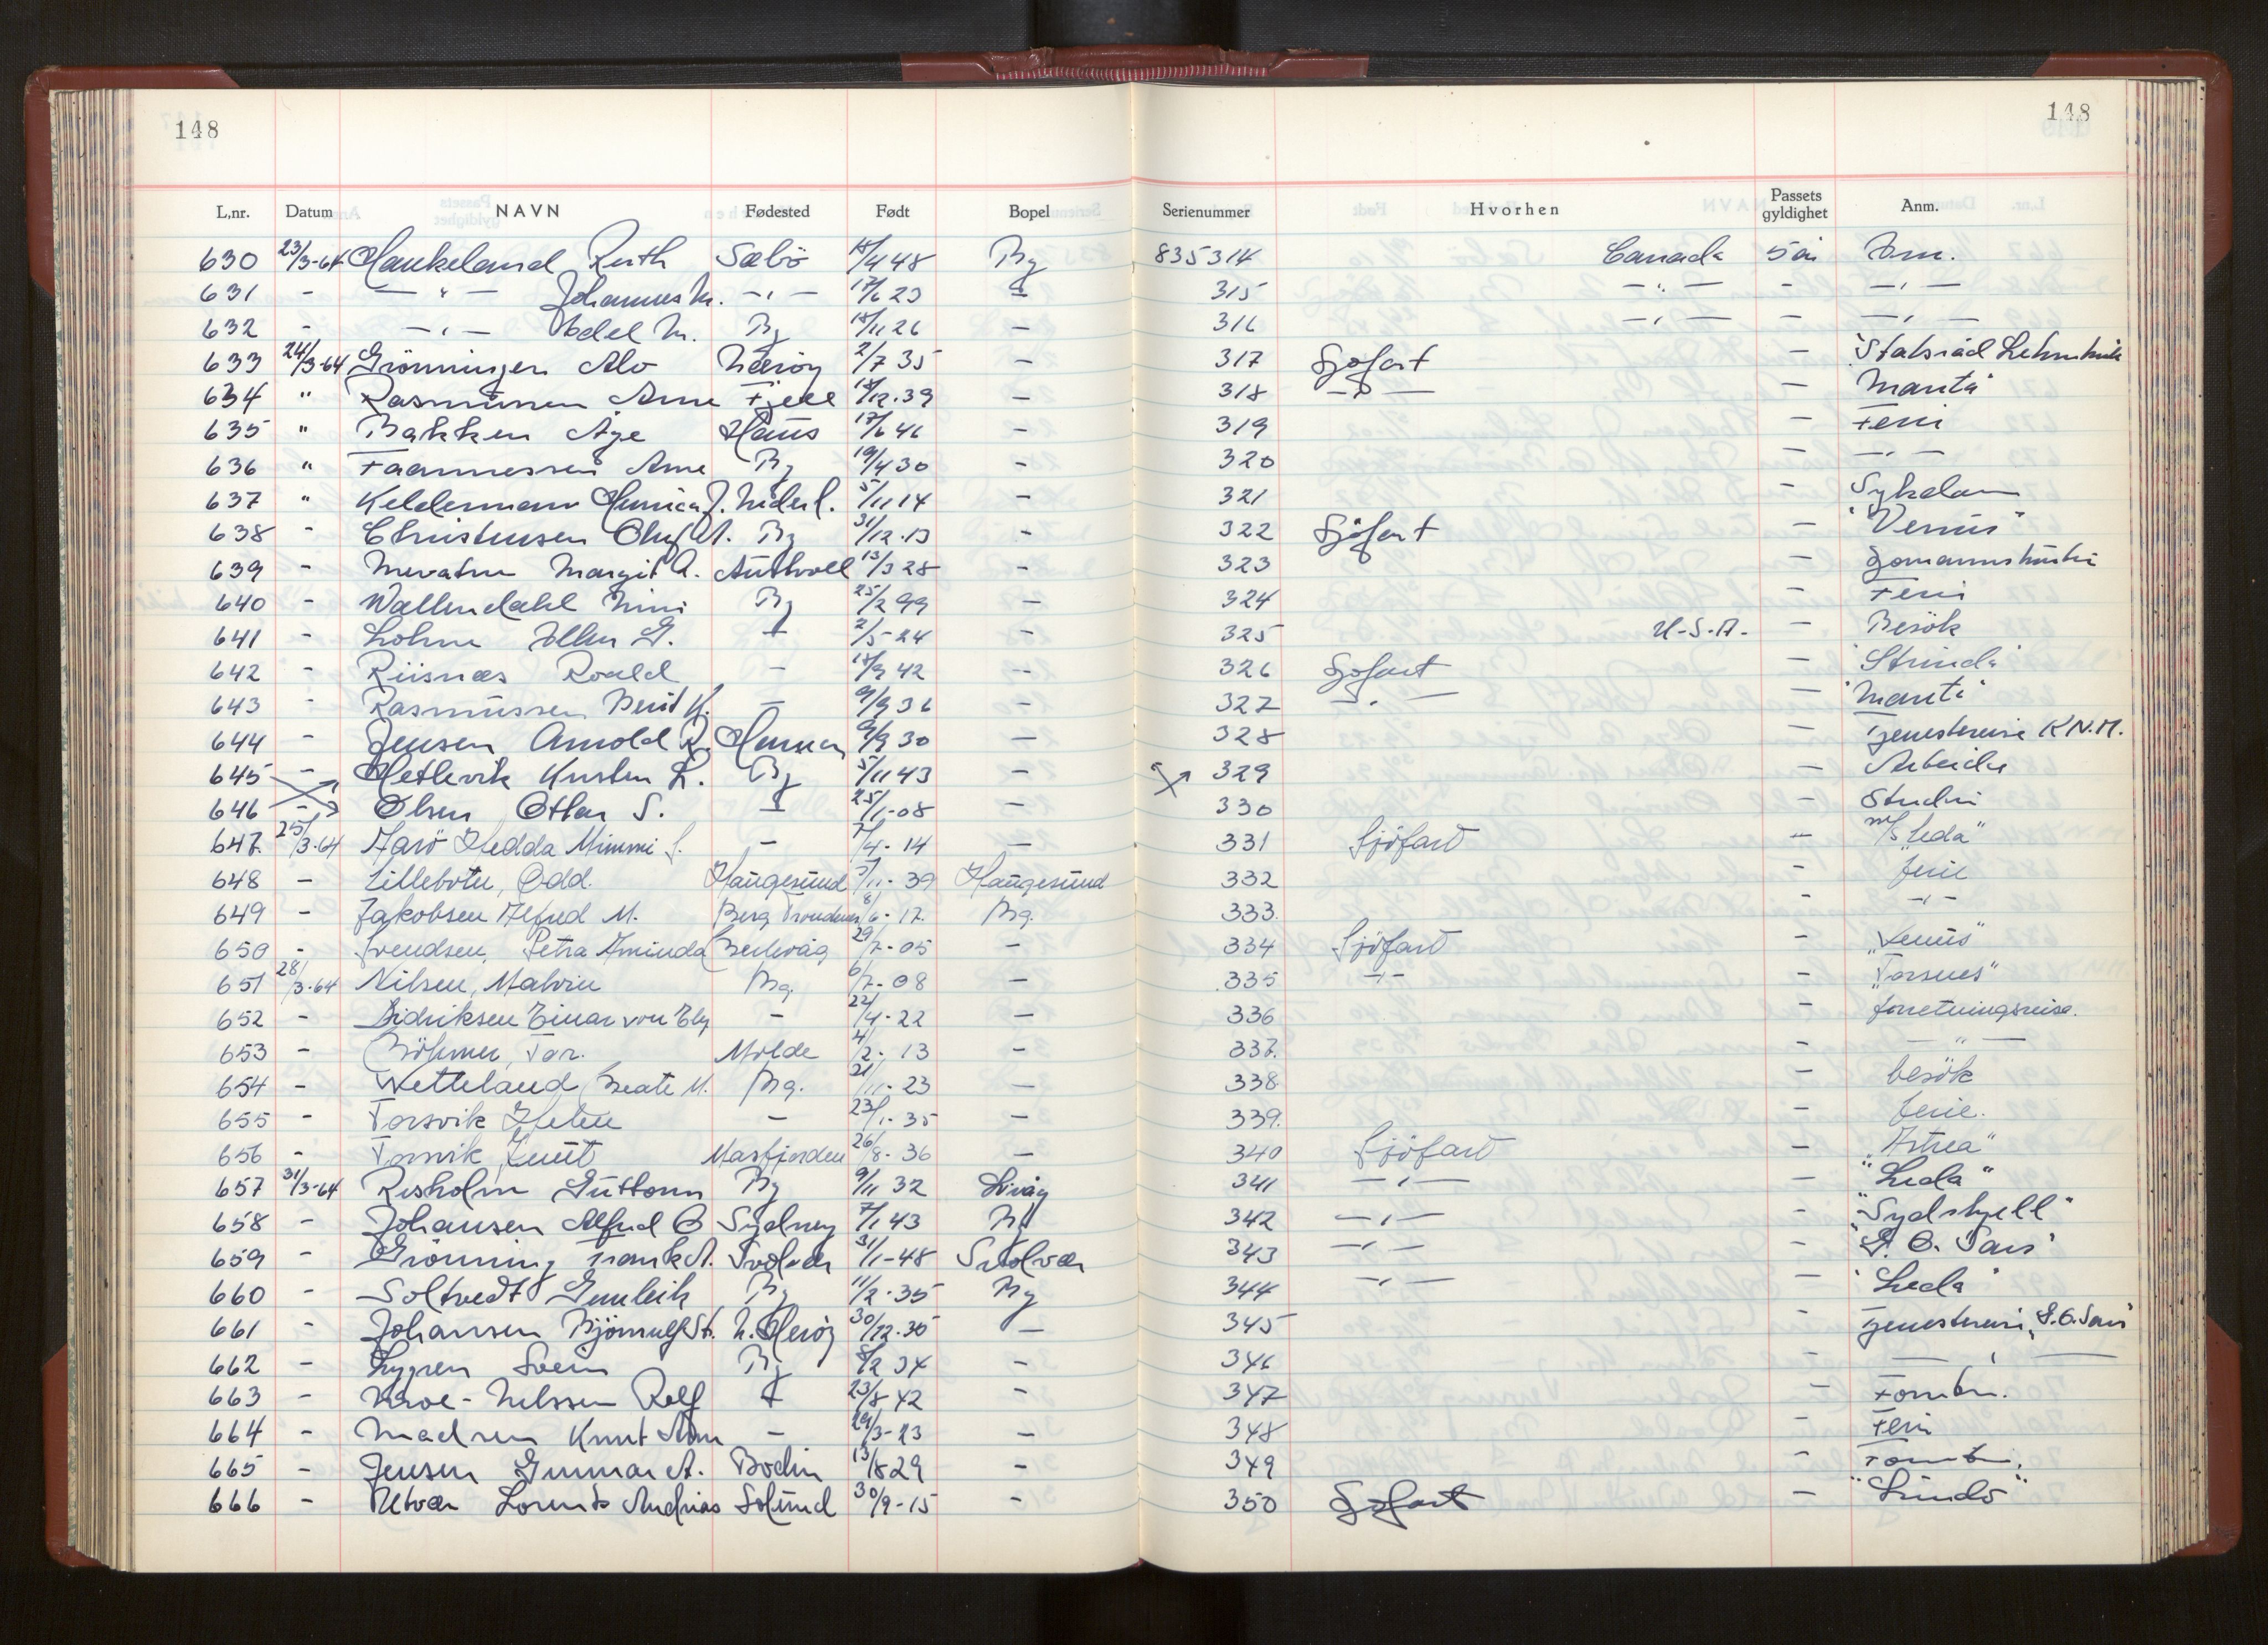 148 148
L,nr. Datum NAVN Fødested Født Bopel Serienummer Hvorhen Passets gyldighet Anm.
630 23/3-64 Haukeland Ruth Sæbö 4 48 Bg 835314 Canada 5 år
631 - - " - Johannes M. - " - 17/6 23 - 315 - " - - - " -
632 - - " - M. Bg 18/11 26 - 316 - " - - - " -
633 24/3-64 Grönningen Alv Nærøy 2/7 35 - 317 Sjøfart - "Statsråd Lehmkuhl
634 " Rasmussen Arne Fjell 12.39 - 318 - " - - "Manta"
635 " Bakken Åge Haus 17/6 46 - 319 - Ferie
636 " Arne Bg 19/4 30 - 320 - - " -
637 " Keldermann J. Nederl. 5/11 14 - 321 -
638 - Christensen Oluf A. Bg 31/12.13 - 322 Sjøfart - "Venus"
639 - Margit A. 13/3 28 - 323 -
640 - Wallendahl Bg 25/2 99 - 324 - Ferie
641 - G. - 2/5-24 - 325 U.S.A. - Besök
642 - Riisnæs Roald - 18/9 42 - 326 Sjøfart - "Strinda"
643 - Rasmussen Berit K. - 9/9 36 - 327 - " - - "Manta"
644 - Jensen Arnold R. 9/9 30 - 328 - Tjenestereise K.N.M.
645 - Hetlevik L. Bg 5/11 43 - 329 - Arbeide
646 - Olsen Ottar S. - 25/1-08 - 330 - Studie
647. 25/3-64 Aarö Hedda Mimmi S. - 7/4-14 - 331 Sjöfart - m/s "Leda"
648 - Lillebotn, Odd. Haugesund 5/11-39 Haugesund 332 - ferie
649 - Jakobsen Alfred M. Berg 8/6-17. Bg. 333. - - " -
650 - Svendsen, Petra Aminda 29/7-05 - 334 Sjöfart - "Venus"
651 28/3-64 Nilsen, Malvin Bg. 6/7-08 - 335 - " - - "Torsnes"
652 - Didriksen Einar von Ely - 22/4-22 - 336 - forretningsreise.
653 - Böhmer, Tor. Molde 4/2-13 - 337. - - " -
654 - Vetteland, Beate M. Bg. 21/11-23 - 338 - besök
655 - Torsvik - 23/1-35 - 339. - ferie.
656 - Torsvik, Knut Masfjorden 26/8-36 - 340 Sjöfart -
657 31/3-64 Risholm Guttorm Bg 9/11 32 341 - " - - "Leda"
658 - Johansen Alfred O Sydney 7/1 43 Bg 342 - " - - "Sydskjell"
659 - Grönning Frank A. Svolvær 31/1-48 Svolvær 343 - " - - "G. O. Sars"
660 - Soltvedt Gunleik Bg 11/2.35 Bg 344 - " - - "Leda"
661 - Johansen Björnulf St. N. Herøy 30/12.30 - 345 - Tjenestereise "G.O. Sars"
662 - Lygren Svein Bg 2 34 - 346 - - " -
663 - Rolf - 23/8 42 - 347 -
664 - Madsen Knut - 29/3-23 - 348 - Ferie
665 - Jensen Gunnar A. Bodin 13/8 29 - 349 -
666 - Utvær Lorentz Andreas Solund 30/9-15 - 350 Sjøfart -